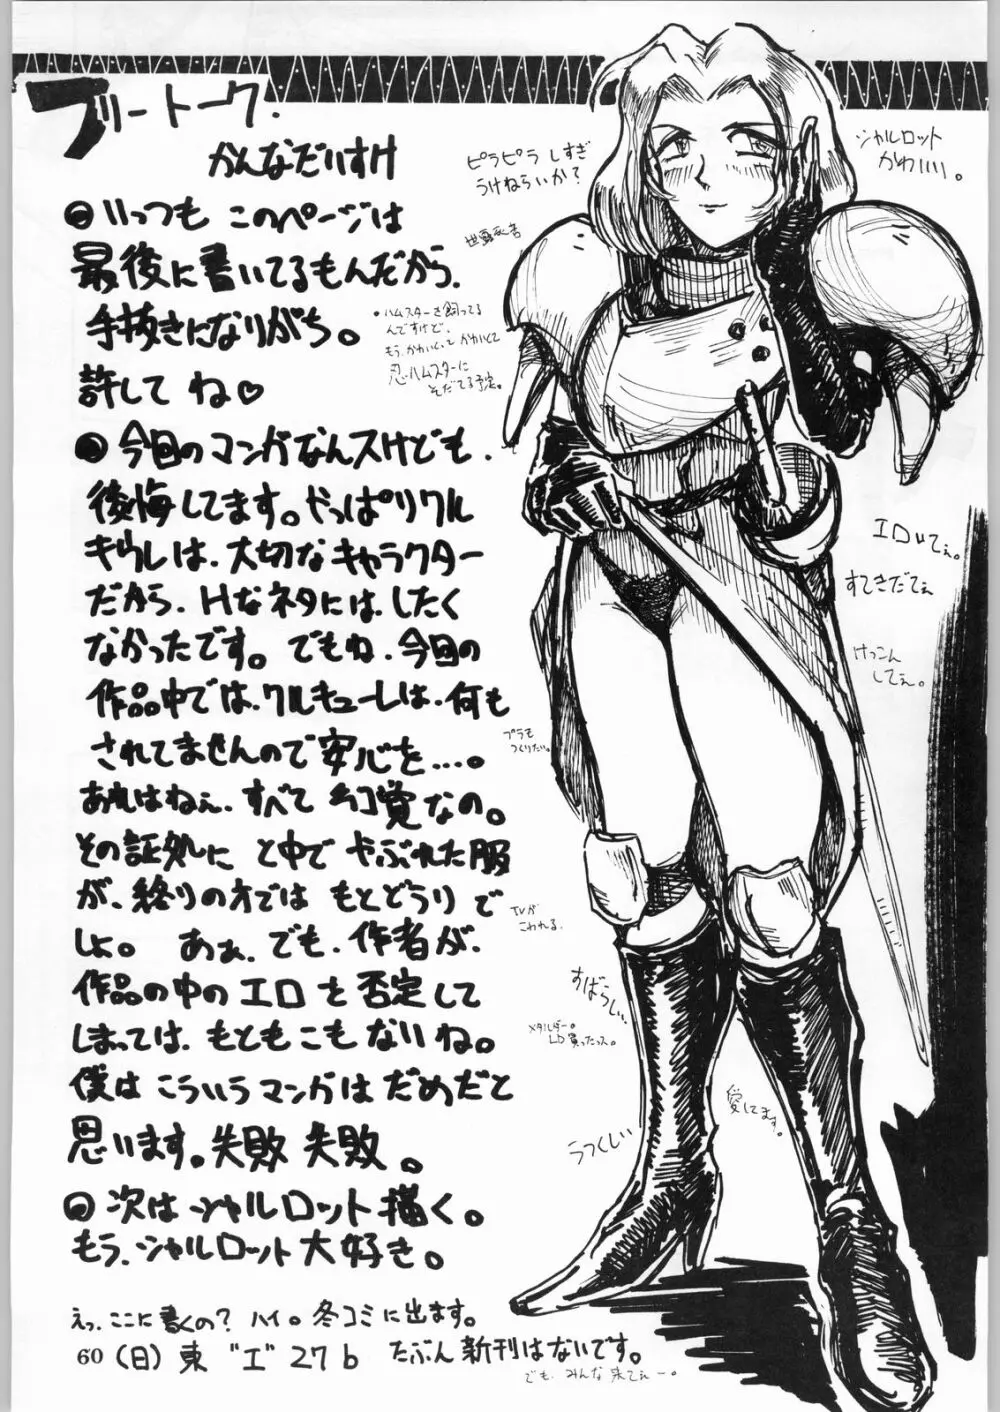 フリートーク.
かんなだいすけ
いっつも このページは
最後に書いてるもんだから、
手抜きになりがち。
許して ね♡
今回のマンガなんスけども、
後悔してます。やっぱりクル
キウレは、大切なキャラクター
だから、Hなネタには、したく
なかったです。でもね、今回の
作品中では、クルキューレは、何も
されてませんので安心を…。
あれはねぇ、すべて 幻覚なの。
その証処に と中で やぶれた服
が、終りの方では もとどうり で
しょ。 あぁ、でも、作者が、
作品の中のエロ を 否定して
しまっては、もともこもないね。
僕は こういうマンガは だめだと
思います。失敗 失敗。
次は シャルロット 描く。
もう、シャルロット 大好き。
えっ、ここに書くの? ハイ。冬コミに出ます。
60 (日) 東 "エ" 27 b たぶん 新刊はないです。
でも、みんな来てぇー。
ピラピラ しすぎ
うけねらいか?
シャルロット
かわいい。
・ハムスターを飼ってる
んですけど、
もう、かわいくて かわいくて
忍ハムスターに
そだてる予定。
エロいてぇ。
すてきだてぇ
けっこん
してぇ。
プラモ
つくりたい。
TVが
こわれる.
すばらしい、
メタルダー。
LD買ったっス。
愛してます。
うつくしい